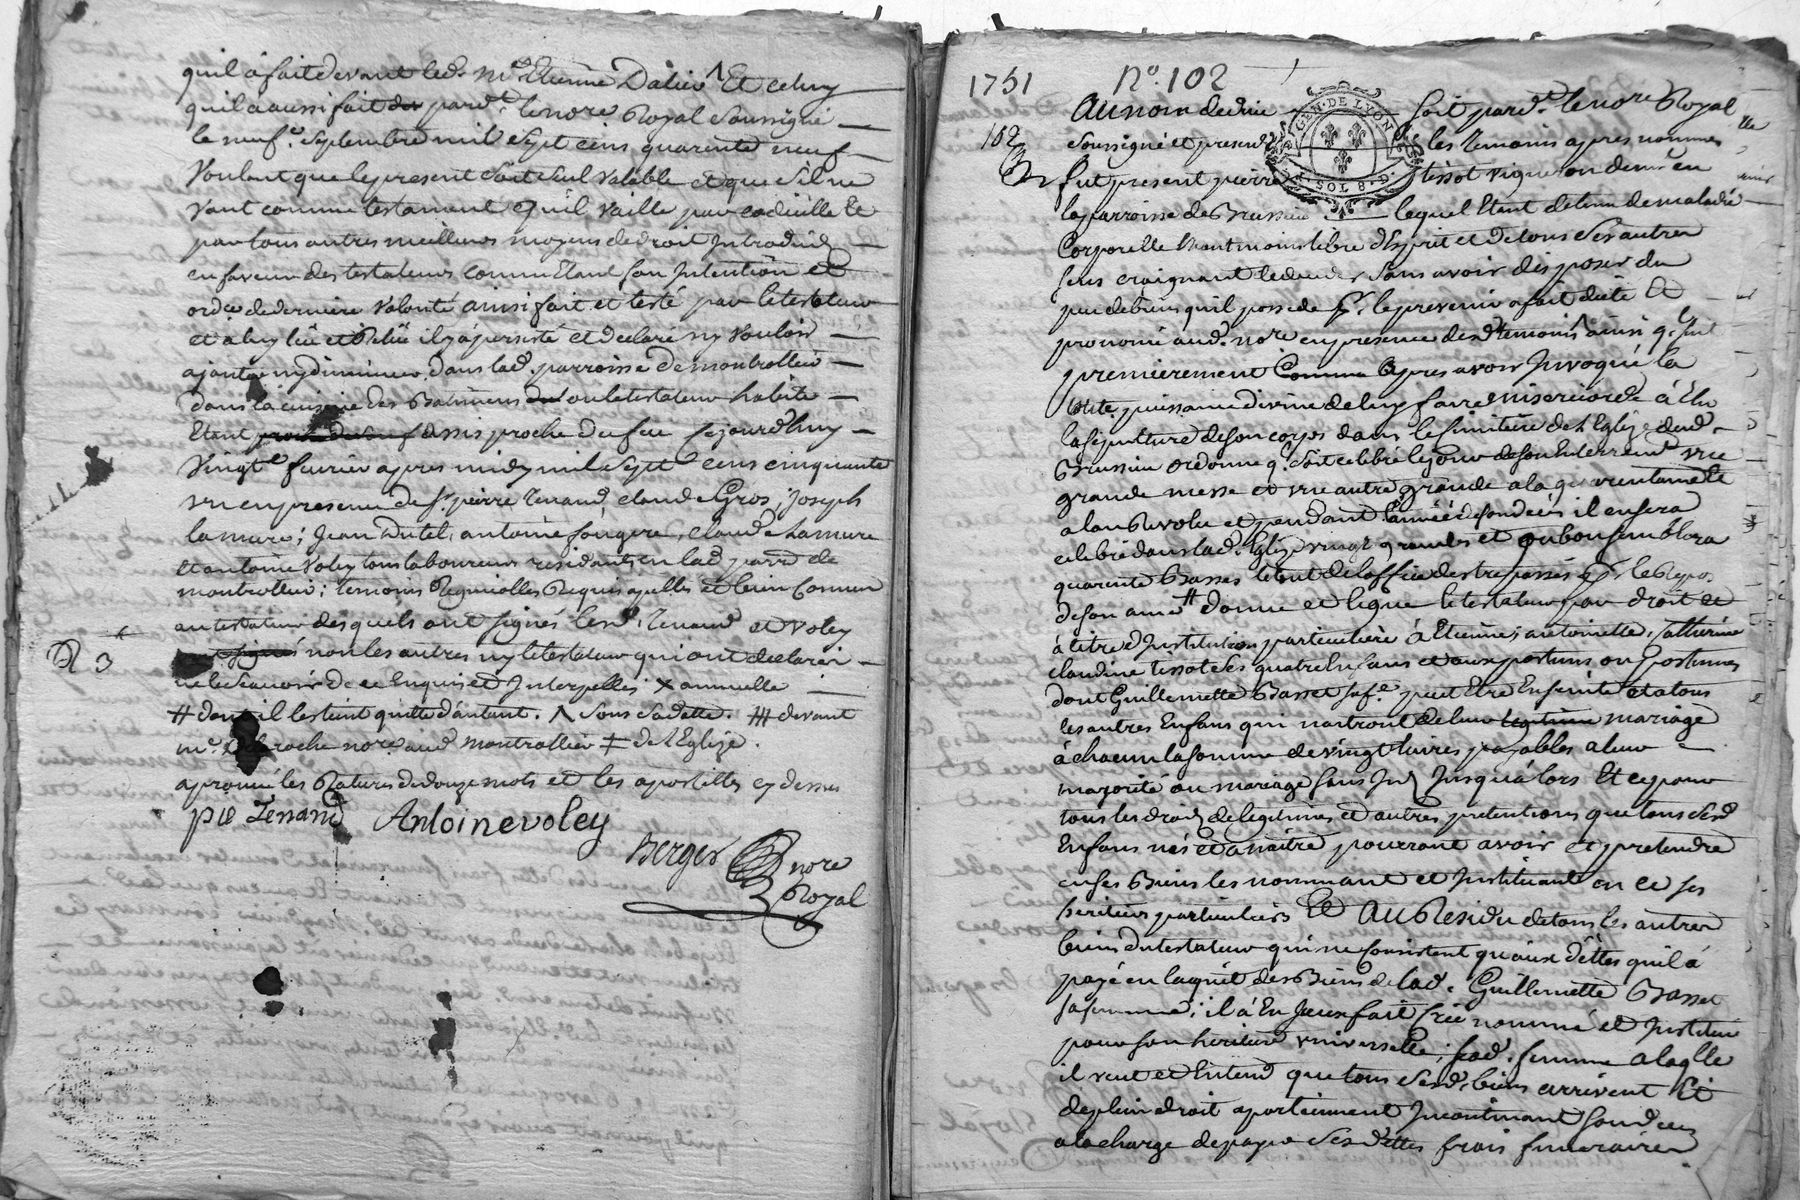 quil a fait devant led. mr. Etienne Dalier Λ Et celuy
quil a aussi fait pard.t le nore Royal soussigné
le neuf.e septembre mil sept cens quarente neuf
Voulant que le present soit seul valable et que sil ne
vaut comme testament quil vaille par codicille Et
par tous autres meilleurs moyens de droit Introduits
en faveur des testateurs comme Etant son Intention et
ord.ce de derniere volonté ainsi fait et testé par le testateur
et a luy lû et Relû il y a persisté et declaré ny vouloir
ajouter ny diminuer, dans lad. parroisse de montrottier
dans la cuisine des Batimens ou le testateur habite
Etant assis proche du feu cejourdhuy
vingt.e fevrier apres midy mil sept cens cinquante
un en presence de sr. pierre Tenand, claude Gros, Joseph
lamure; Jean Dutel, antoine fougere, claude Lamure
et antoine voley tous laboureurs residants en lad. parr.e de
montrottier; temoins Regnicolles Requis apellés et bien connus
au testateur desquels ont signés lesd. Tenand et voley
non les autres ny le testateur qui ont declaré
ne le sçavoir de ce Enquis et Interpellés × annuelle
# dont il les tient quitte d'autant. Λ sous sa datte. ## devant
m.e Delaroche nore aud. montrottier ‡ de l'Eglize.
aprouvé les Ratures de douze mots et les apostilles cy dessus
pre Tenand Antoine voley
Berger nore
Royal
1751 No. 102
GEN. DE LYON
8 SOLS
102
Au nom de dieu soit pard.t le nore Royal
soussigné et presence les Temoins apres nommés
fut present pierre tissot vigneron demt en
la parroisse de Brussieu lequel Etant detenu de maladie
Corporelle Neantmoins libre d'Esprit et de tous ses autres
sens craignant de deceder sans avoir disposer du
peu de biens quil possede pr. le prevenir a fait dicté et
prononcé aud. nore en presence desd. temoins ainsi q. suit
premierement Comme apres avoir Invoqué la
toute puissance divine de luy faire misericorde à Elu
la sepulture de son corps dans le simitiere de l'Eglize dud.
Brussieu ordonne q. soit celebré le jour de son Enterremt une
grande messe et une autre grande a la quarentaine et
a l'an Revolu et pendant l'année de son decès il en sera
celebré dans lad. Eglize vingt grandes et
quarente Basses le tout de l'office des trepassés pr. le Repos
de son ame # donne et legue le testateur par droit et
à titre d'Institution particuliere à Etienne, antoinette, Catherine
claudine tissot ses quatre Enfans et aux postums ou postumes
dont Guillemette Basset sa fe. peut Etre Enceinte et a tous
les autres Enfans qui naitront de leur legitime mariage
à chacun la somme de vingt livres payables a leur
majorité ou mariage sans Int. Jusqu'alors Et ce pour
tous les droits de legitimes et autres pretentions que tous sesd.
Enfans nés et à naître pourront avoir et pretendre
en ses Biens les nommant et Instituant en ce ses
heritiers particuliers Et Au Residu de tous les autres
biens du testateur qui ne consistent qu'aux dettes quil a
payé en l'aquit des Biens de lad. Guillemette Basset
sa femme; il a En Iceux fait créé nommé et Institué
pour son heritiere universelle, sad. femme a laqlle
il veut et Entend que tous sesd. biens arrivent Et
de plein droit apartiennent Incontinant son deces
a la charge de payer ses dettes frais funeraires